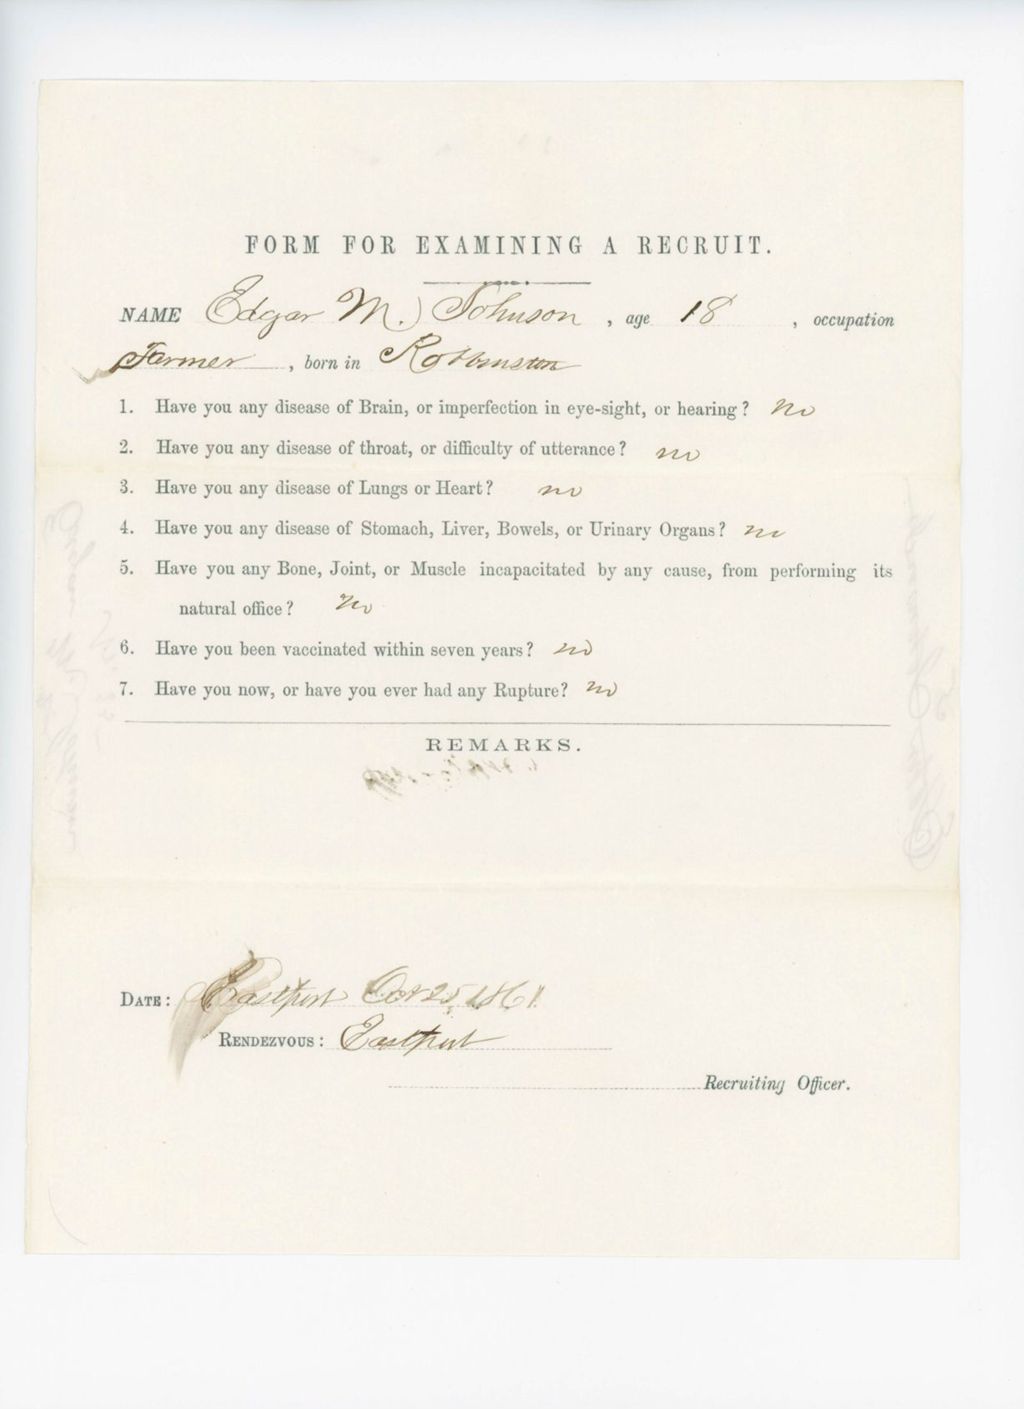 FORM FOR EXAMINING A RECRUIT.
NAME Edgar M. Johnson , age 18 , occupation
Farmer , born in Robbinston
1. Have you any disease of Brain, or imperfection in eye-sight, or hearing? no
2. Have you any disease of throat, or difficulty of utterance? no
3. Have you any disease of Lungs or Heart? no
4. Have you any disease of Stomach, Liver, Bowels, or Urinary Organs? no
5. Have you any Bone, Joint, or Muscle incapacitated by any cause, from performing its
natural office? no
6. Have you been vaccinated within seven years? no
7. Have you now, or have you ever had any Rupture? no
REMARKS.
DATE: Eastport Oct 25, 1861.
RENDEZVOUS: Eastport
Recruiting Officer.